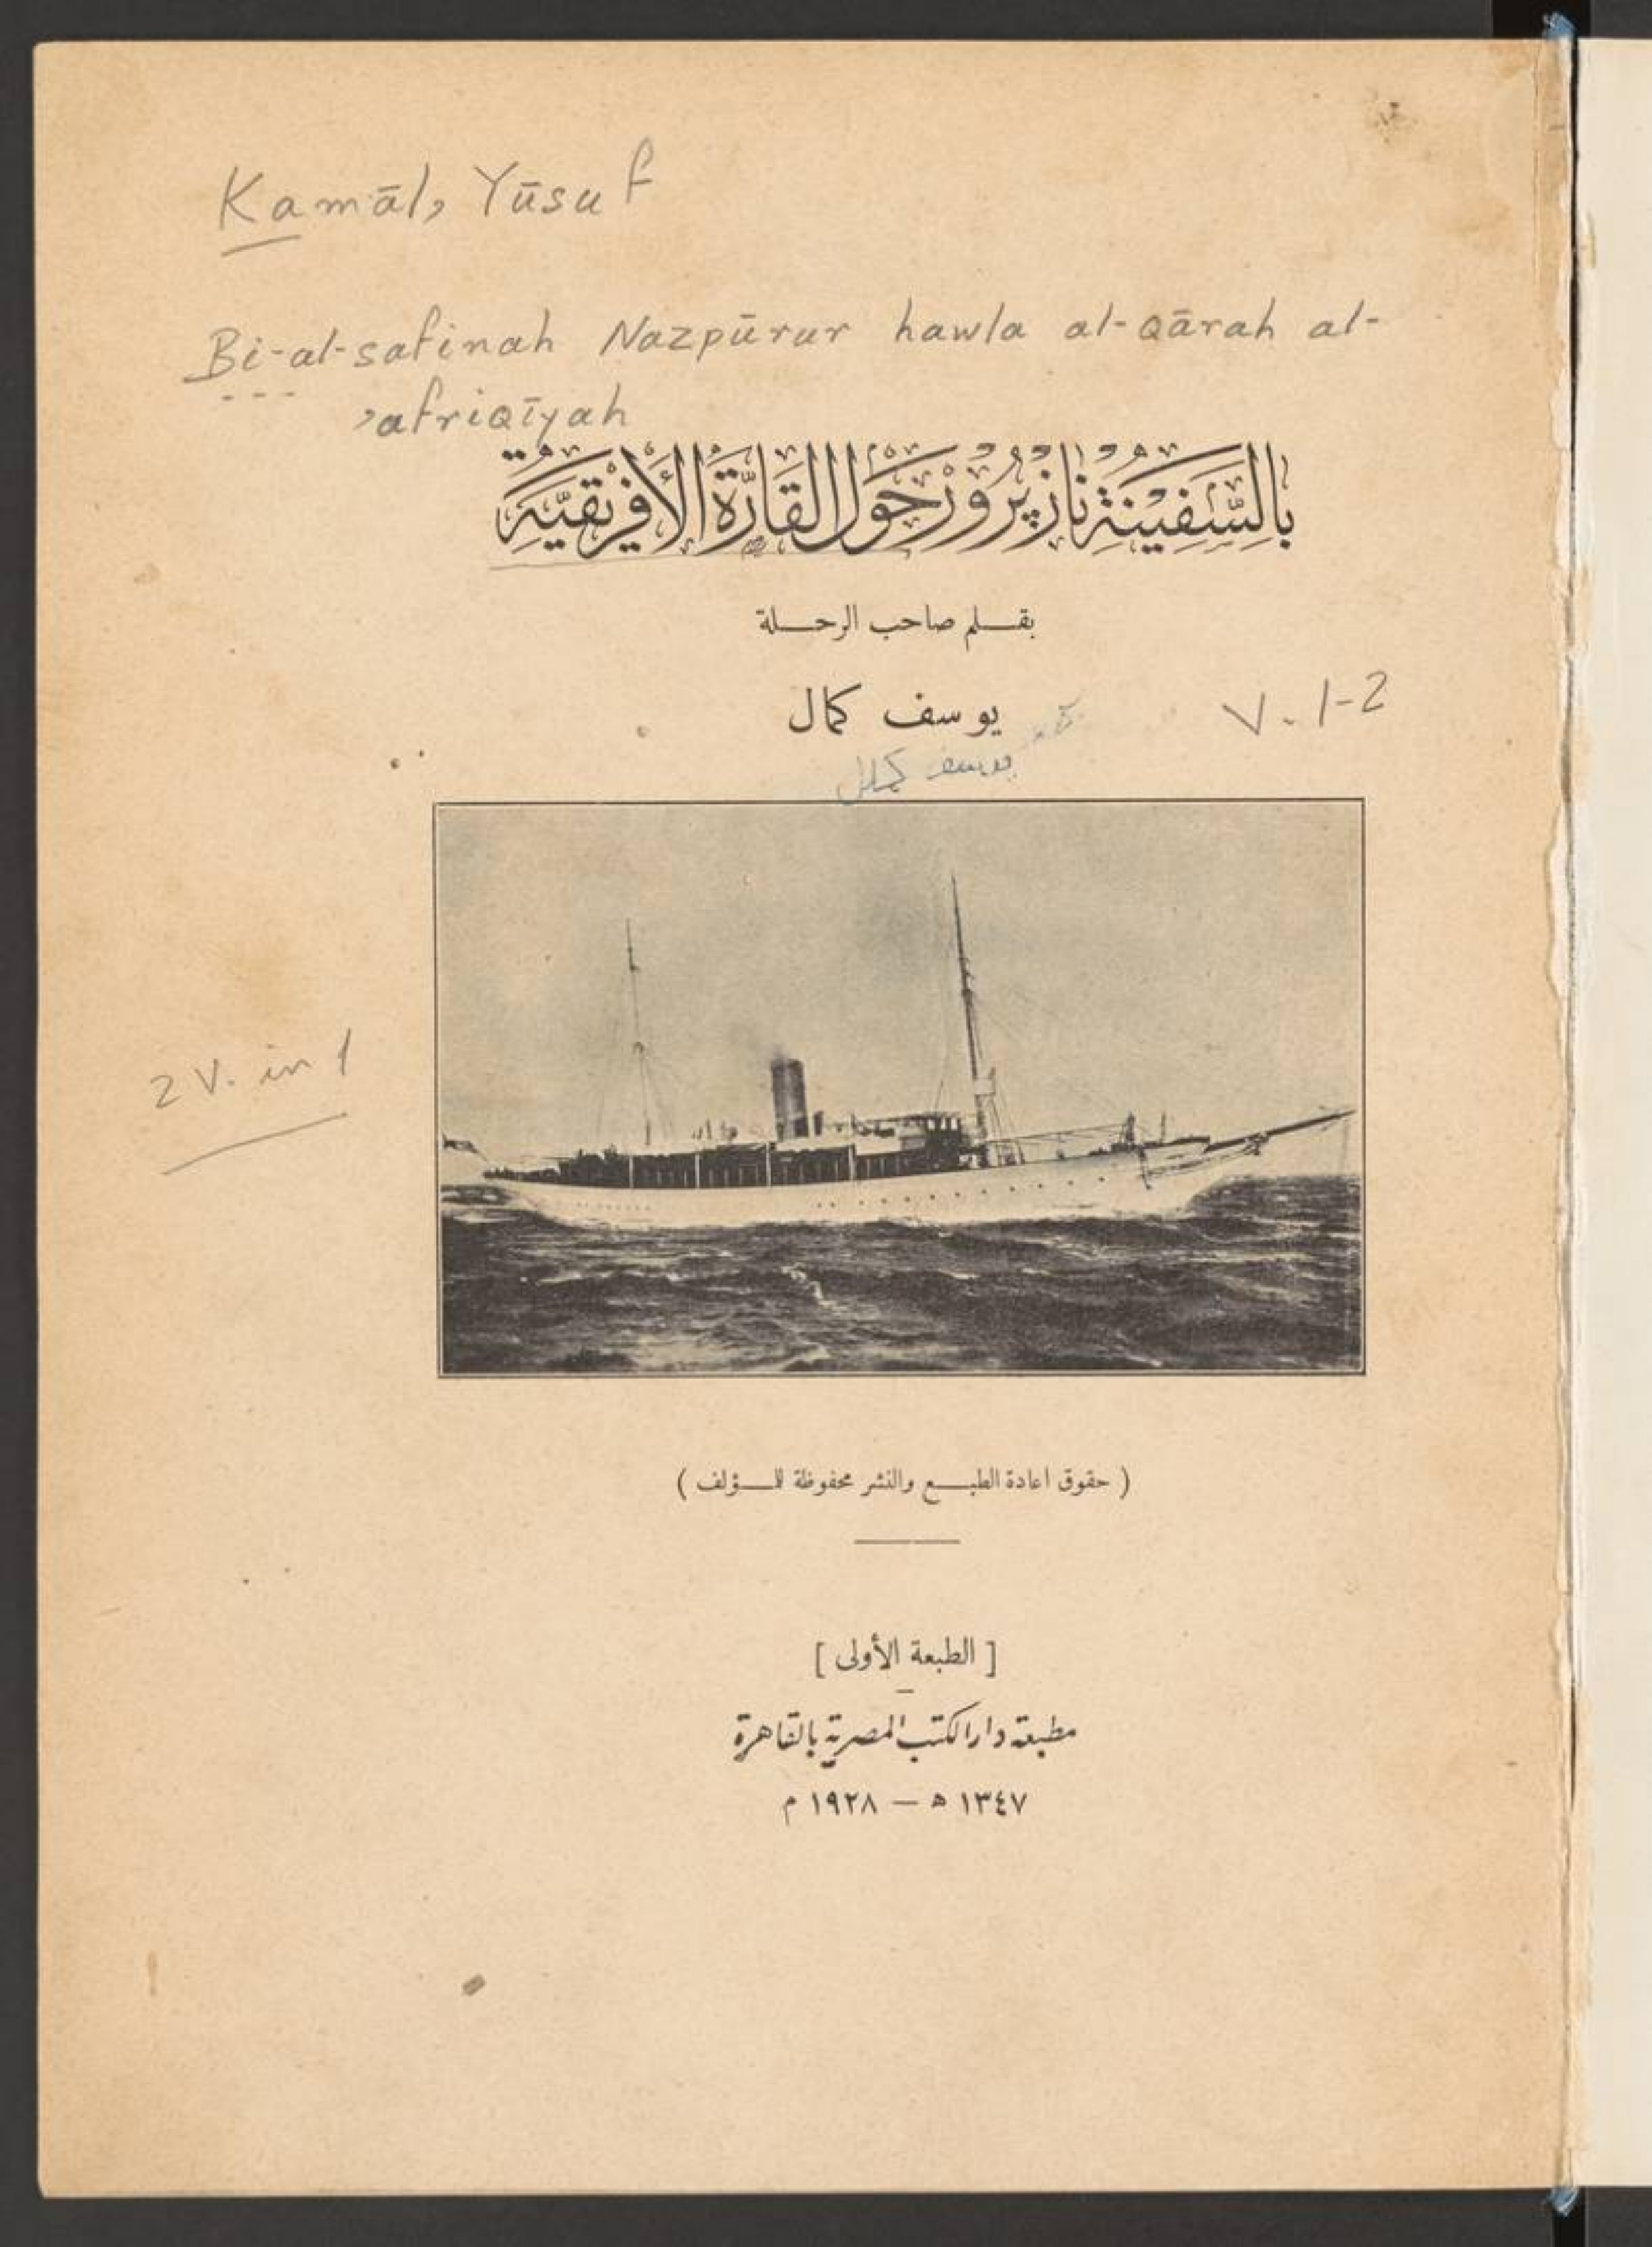 Kamāl, Yūsuf
Bi-al-safinah Nazpūrur hawla al-qārah al-
'afriqīyah
بِالسَّفِينَةِ نَازْپَرْوَرْ حَوْلَ الْقَارَّةِ الْأَفْرِيقِيَّةِ
بقلم صاحب الرحلة
يوسف كمال
V. 1-2
يوسف كمال
2 V. in 1
( حقوق اعادة الطبع والنشر محفوظة للمؤلف )
[ الطبعة الأولى ]
مطبعة دار الكتب المصرية بالقاهرة
١٣٤٧ ه — ١٩٢٨ م